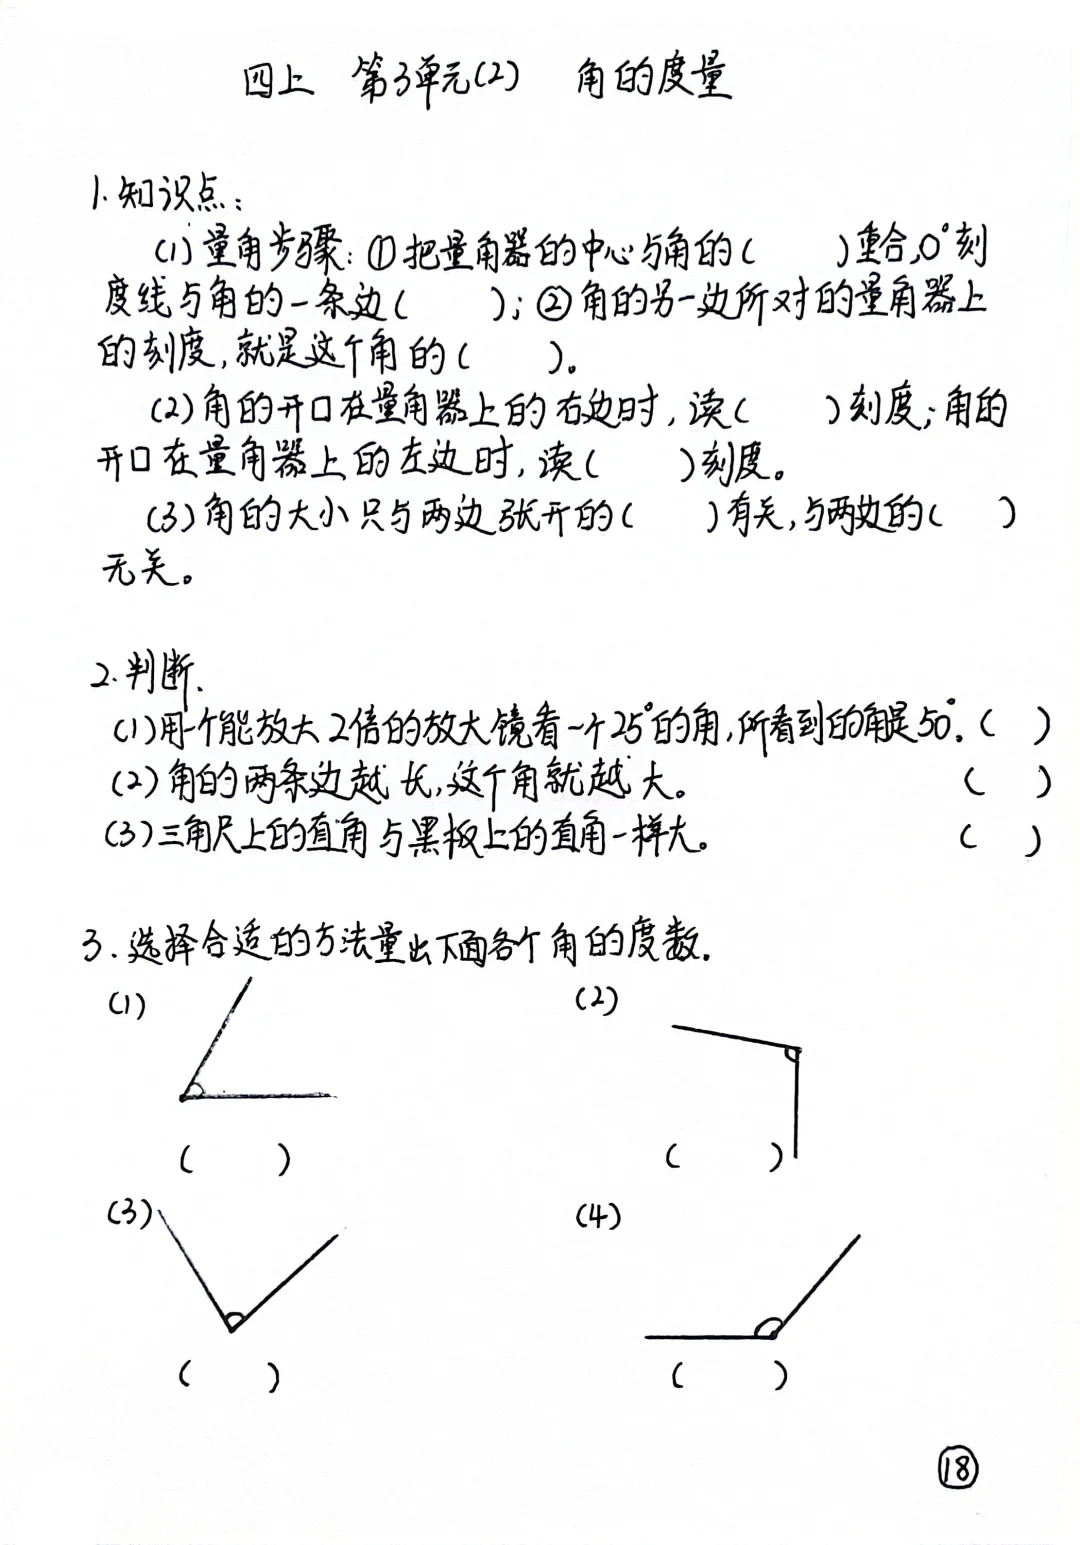 四上 第3单元(2) 角的度量
1.知识点:
(1)量角步骤:①把量角器的中心与角的( )重合,0°刻
度线与角的一条边( );②角的另一边所对的量角器上
的刻度,就是这个角的( )。
(2)角的开口在量角器上的右边时,读( )刻度;角的
开口在量角器上的左边时,读( )刻度。
(3)角的大小只与两边张开的( )有关,与两边的( )
无关。
2.判断.
(1)用一个能放大2倍的放大镜看一个25°的角,所看到的角是50°.( )
(2)角的两条边越长,这个角就越大。 ( )
(3)三角尺上的直角与黑板上的直角一样大。 ( )
3.选择合适的方法量出下面各个角的度数.
(1) (2)
( ) ( )
(3) (4)
( ) ( )
18